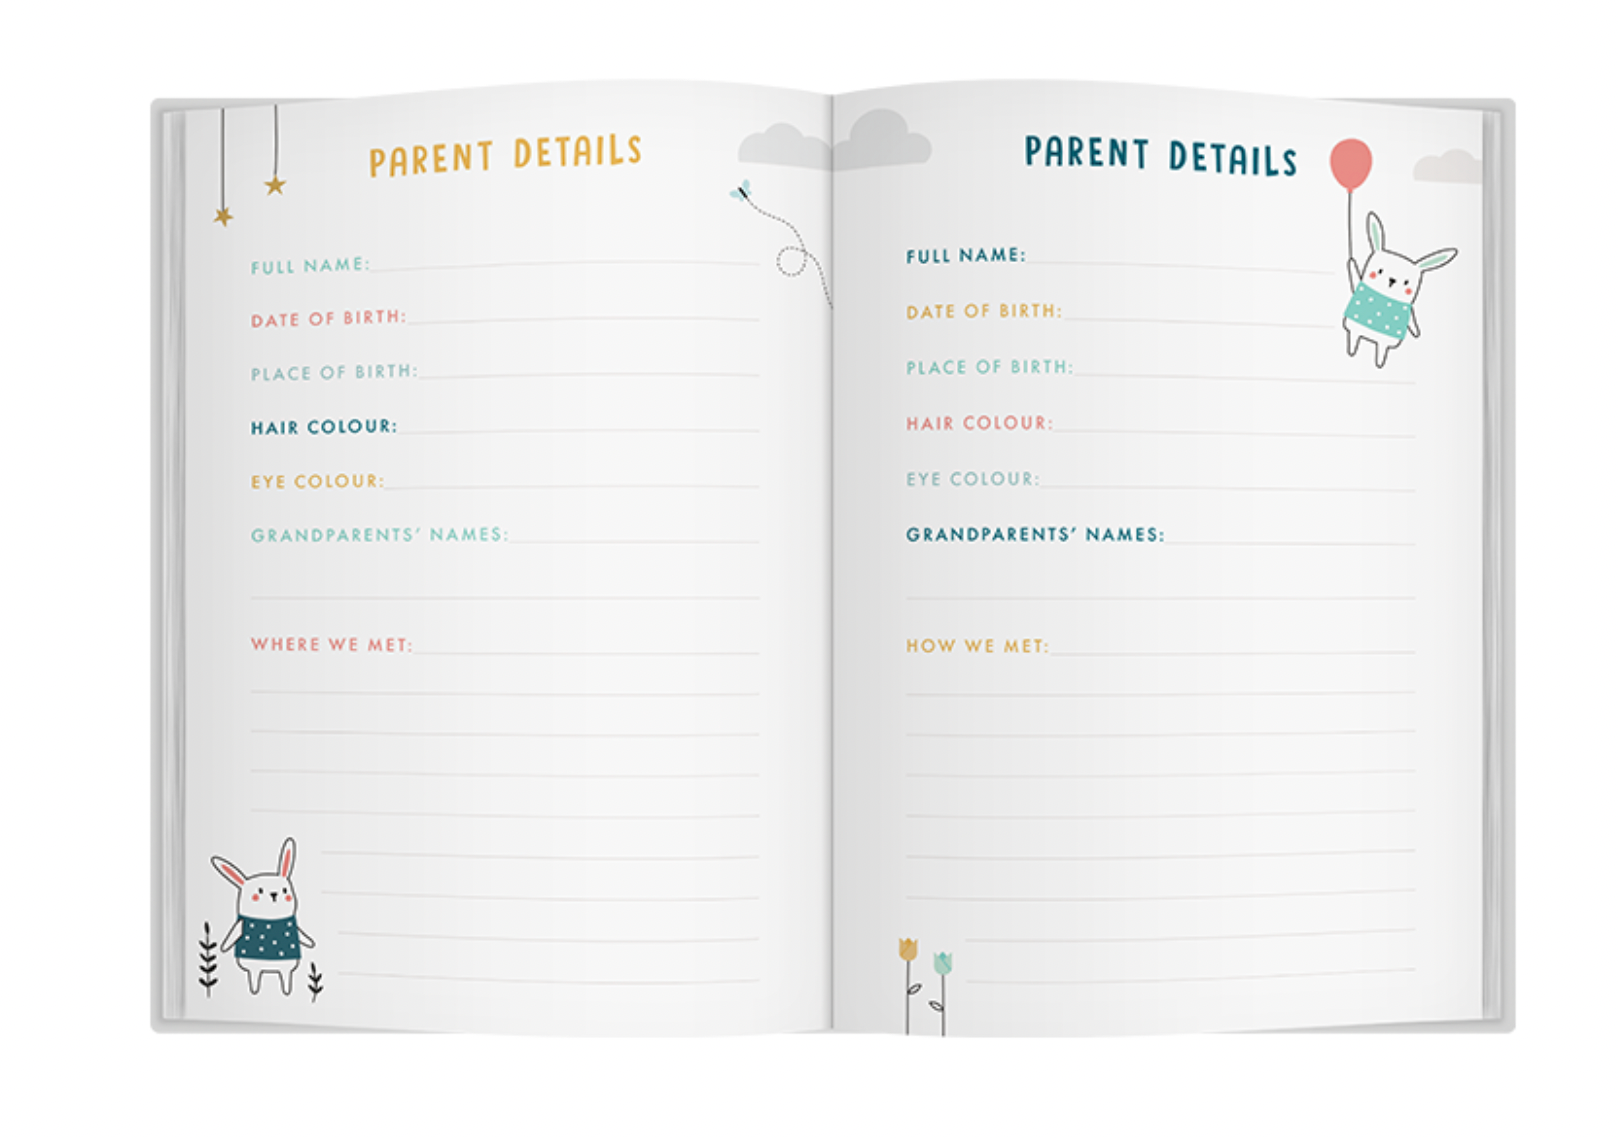 PARENT DETAILS
FULL NAME:
DATE OF BIRTH:
PLACE OF BIRTH:
HAIR COLOUR:
EYE COLOUR:
GRANDPARENTS’ NAMES:
WHERE WE MET:
PARENT DETAILS
FULL NAME:
DATE OF BIRTH:
PLACE OF BIRTH:
HAIR COLOUR:
EYE COLOUR:
GRANDPARENTS’ NAMES:
HOW WE MET: